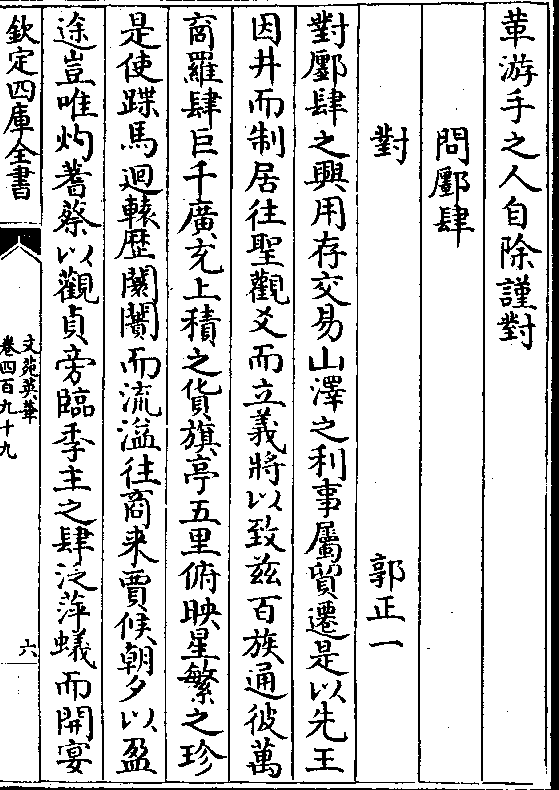 革游手之人自除謹對
問鄽肆
對
郭正一
對鄽肆之興用存交易山澤之利事屬貿遷是以先王
因井而制居往聖觀爻而立義將以致兹百族通彼萬
商羅肆巨千廣充上積之貨旗亭五里俯映星繁之珍
是使蹀馬迴轅歴闤闠而流溢往商来賈候朝夕以盈
途豈唯灼蓍蔡以觀貞旁臨季主之肆泛萍蟻而開宴
欽定四庫全書
文苑英華
卷四百九十九
六